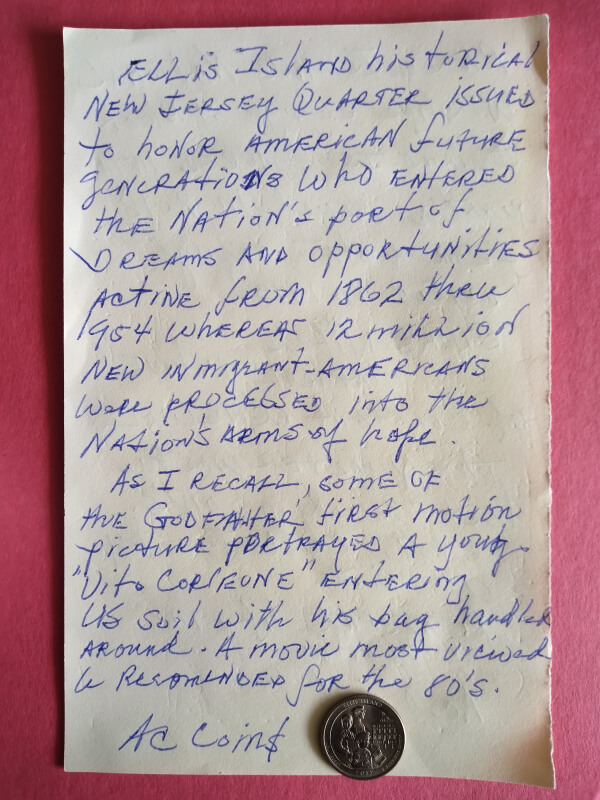 ELLis IslAND historical
NEW JERSEY QUARTER issued
to honor AMERICAN future
generations who ENTERED
the NATION's port of
DREAMS AND opportunities
ACTINE from 1862 thru
1954 WHEREAS 12 million
NEW inmigrant-AMERICANS
were processed into the
NATION'S ARMS of hope.
As I RECALL, some of
the GODFATHER first motion
picture portrayed A young
"Vito CORLEONE" ENTERING
US soil with his bag handled
AROUND. A movie most viewed
& RECOMENDED for the 80's.
AC Coin$
ELLIS ISLAND
2017